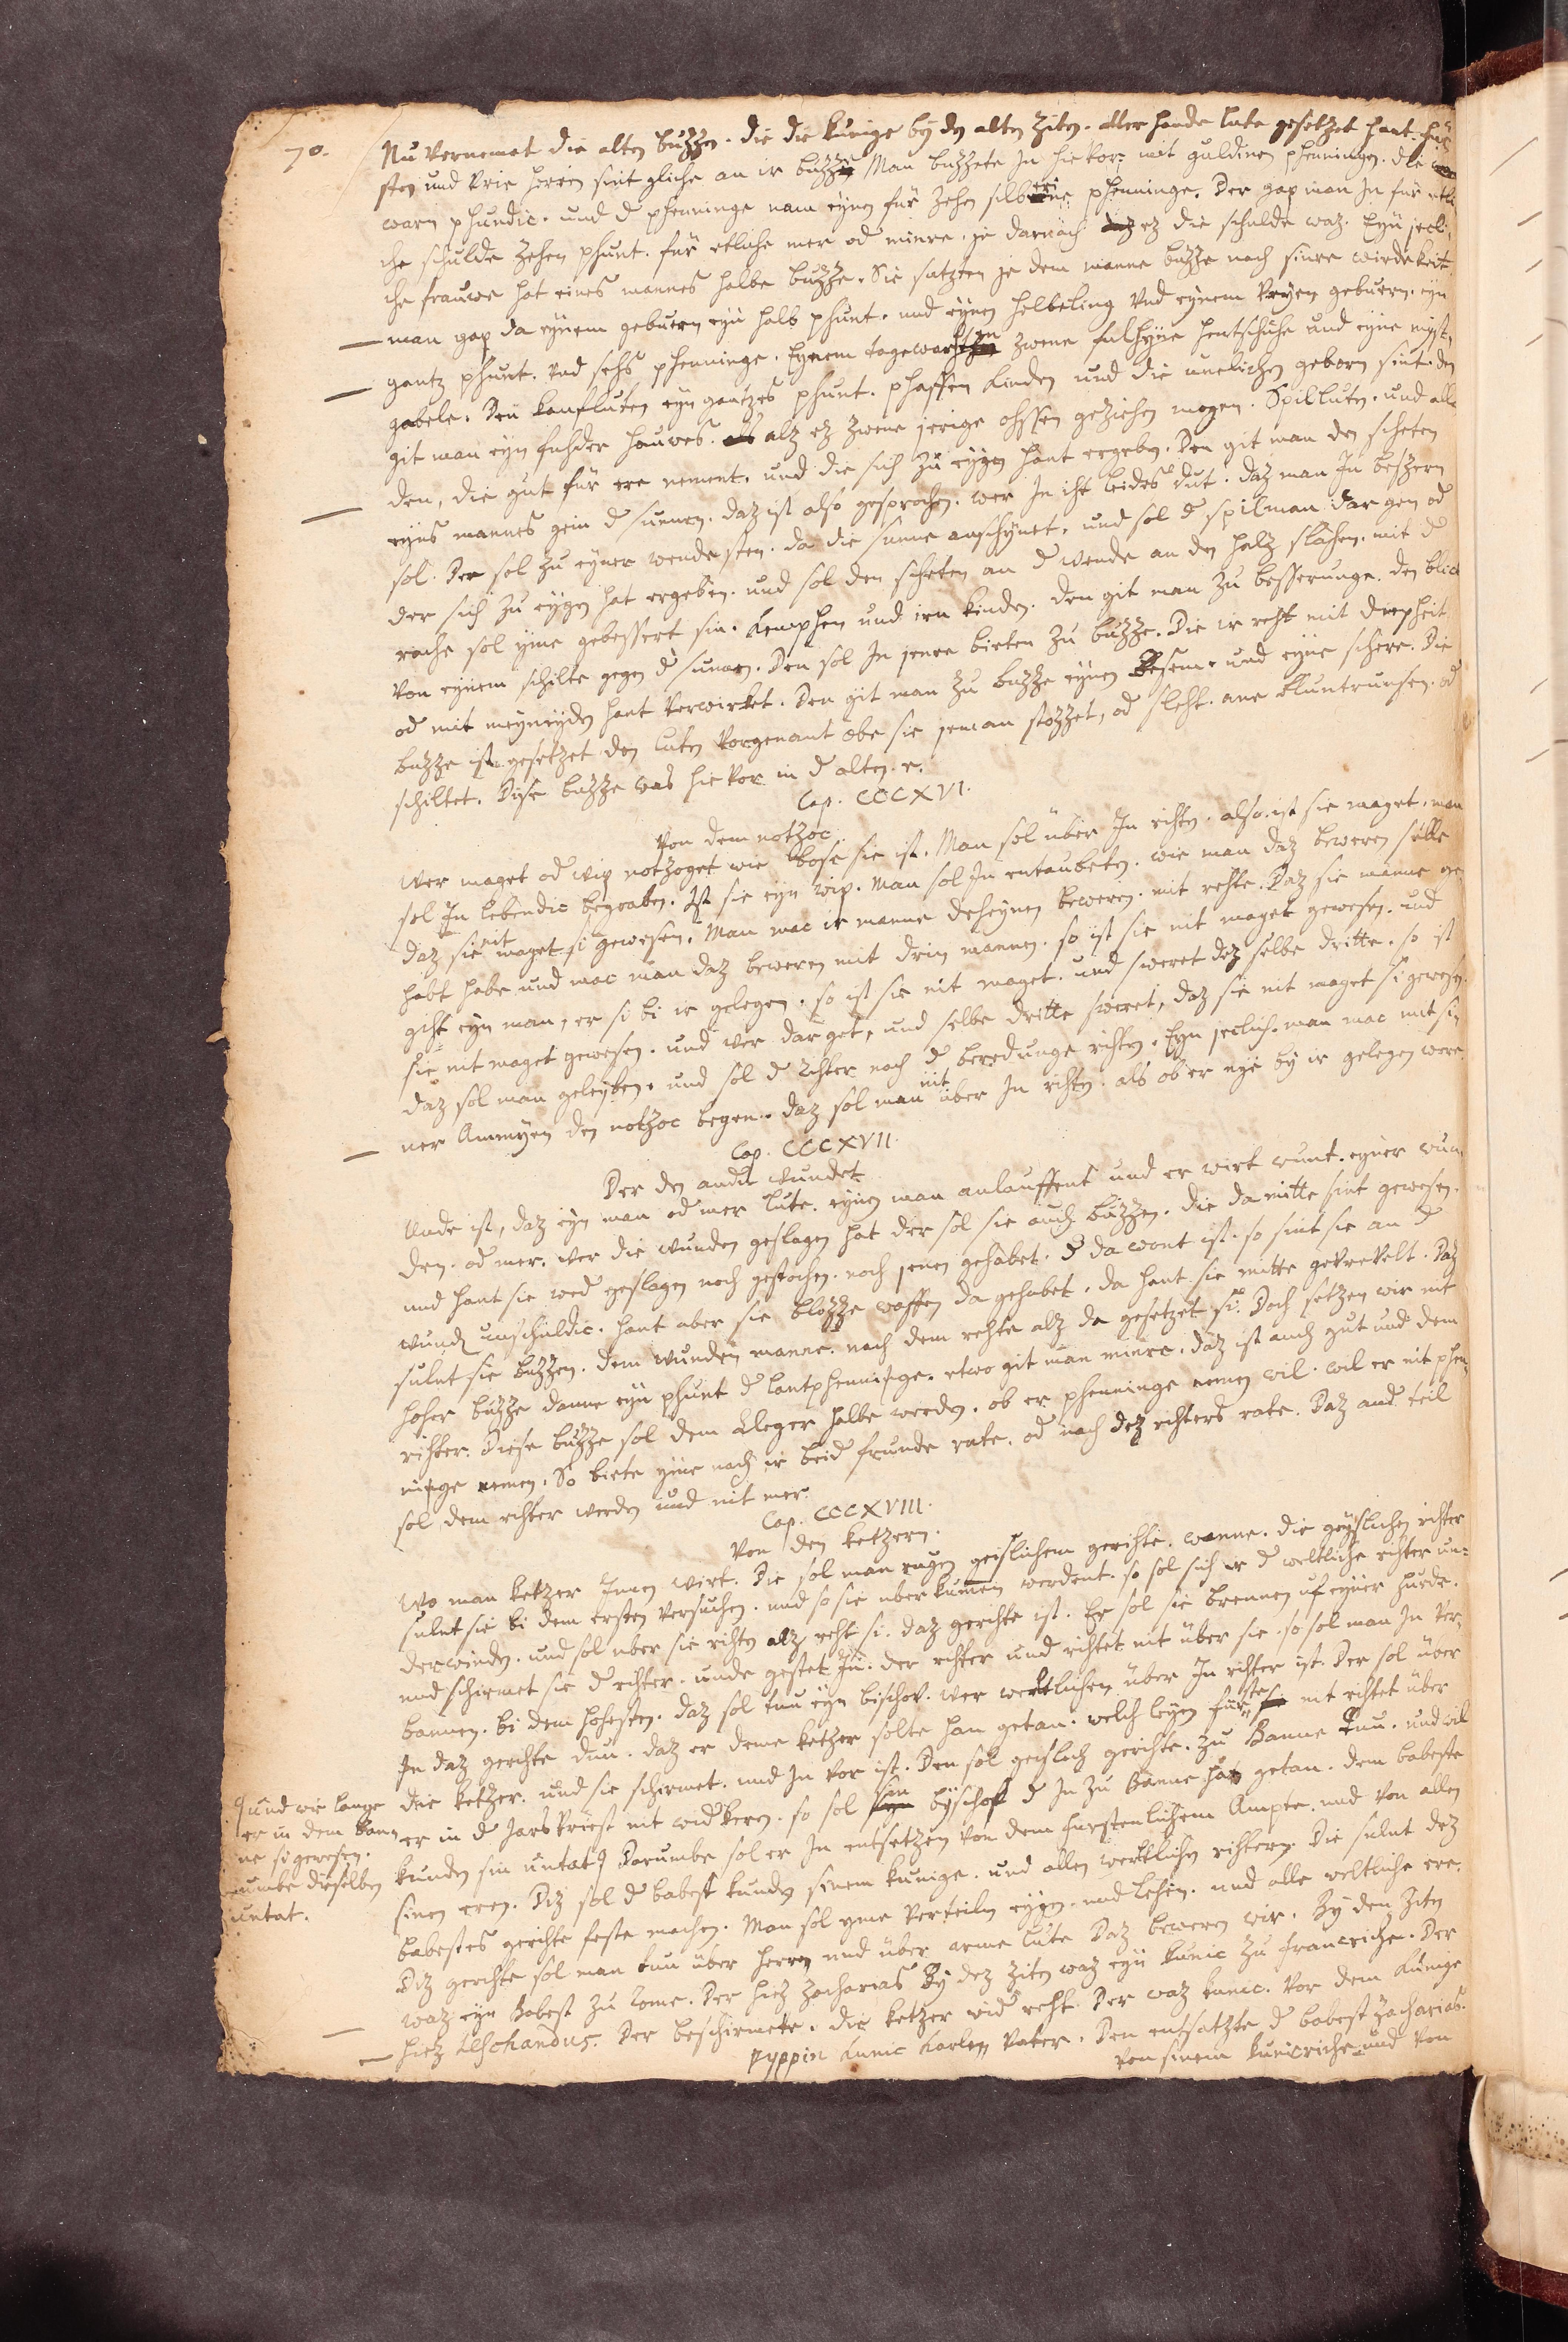 70.
Nu vernemet die alten buzzen. die die kunige by den alten ziten. aller hande lute gesetzet hant. fur
sten und vrie herren sint gliche an ir buzze Man buzzete In hie vor. mit guldinen phenningen. die
warn phundic. und d pfenninge nam eynen für zehen silberine phenninge. Der gap man In für etli
che schulde zehen phunt. für etliche mer od minre. je darnach ez die schulde waz. Eyn jecli,
che frauwe hat eines mannes halbe buzze. Sie satzten je dem manne buzze nach sinre wirdekeit
man gap da eynem gebuern eyn halb phunt. und eynen helbeling Und eynem vryen gebuern. eyn
gantz phunt. und sehs phenninge. Eynem tagewarhten zwene fulhyne hentschuhe und eyne myst,
gabele. Den kaufluten eyn gantzes phunt. phaffen kinden und die unelichen geborn sint. den
git man eyn fuhder hauwes. alz ez zwene jerige ohssen geziehen mogen. Spilluten. und alle
den, die gut für ere nement. und die sich zu eygen hant ergeben. Den git man den scheten
eyns mannes gein d sunnen. daz ist also gesprochen. wer In iht leides dut. daz man In beszern
sol. Der sol zu eyner wende sten. da die sunne anschynet. und sol d spilman dar gen od
der sich zu eygen hat ergeben. und sol den scheten an d wende an den halz slahen. mit d
rache sol yme gebessert sin. kemphen und irn kinden. den git man zu besserunge. den blick
von eynem schilte gegen d sunnen. Den sol In jenre bieten zu buzze. Die ir reht mit diepheit
od mit meyneyden hant verwirket. Den git man zu buzze eynen besem. und eyne schere. Die
buzze ist gesetzet den luten vorgenant obe sie jeman stozzet, od sleht. ane bluntrunsen. od
schiltet. Dise buzze was hie vor in d alten. e.
Cap. CCCXVI.
Von dem notzoc.
Wer maget od wip notzoget wie bose sie ist. Man sol über In rihten. also. ist sie maget. man
sol In lebendic begraben. Ist sie eyn wip. Man sol In entaubeten. wie man daz beweren sülle
daz sie nit maget si gewesen. Man mac ir manne deheynen beweren. mit rehte. Daz sie manne ge
habt habe und mac man daz beweren mit drin mannen. so ist sie nit maget gewesen. und
giht eyn man, er si bi ir gelegen. so ist sie nit maget. und sweret dez selbe dritte. so ist
sie nit maget gewesen. und wer dar get, und selbe dritte sweret, daz sie nit maget si gewesen.
daz sol man geleyben. und sol d rihter nach d beredunge rihten. Eyn jeclich man mac mit si,
ner Ammyen den notzoc begen. daz sol man nit über In rihten. als ob er nye by ir gelegen were
Cap. CCCXVII.
Der den andn wundet
Unde ist, daz eyn man od mer lute. eynen man anlauffent und er wirt wunt. eyner wun
den. od mer. wer die wunden geslagen hat der sol sie auch büzzen. die da mitte sint gewesen.
und hant sie wed geslagen noch gestochen. noch jenen gehabet. d da wont ist. so sint sie an d
wunde unschuldic. hant aber sie blozze waffen da gehabet. da hant sie mitte gevrevelt. Daz
sulnt sie buzzen. dem wunden manne. nach dem rehte alz da gesetzet si. Doch setzen wir nit
hoher buzze danne eyn phunt d lantphenninge. etwo git man minre. daz ist auch gut und dem
rihter. Diese buzze sol dem kleger halbe werden. ob er phenninge nemen wil. wil er nit phen,
ninge nemen. So biete yme nach ir beid frunde rate. od nach dez rihters rate. Daz and teil
sol dem rihter werden und nit mer.
Cap. CCCXVIII.
Von den ketzern.
Wo man ketzer Innen wirt. Die sol man rugen geislichem gerihte. wanne. die geyslichen rihter
sulnt sie bi dem ersten versuchen. und so sie uberkumen werdent. so sol sich ir d weltliche rihter un=
derwinden. und sol uber sie rihten alz reht si. daz gerihte ist. Er sol sie brennen uf eyner hurde.
und schirmet sie d rihter. unde gestet In. der rihter und rihtet nit über sie. so sol man In ver,
bannen. bi dem hohesten. daz sol tuu eyn bischov. wer wertlichen über In rihter ist. Der sol über
In daz gerihte dun. daz er deme ketzer solte han getan. welch leyen fürste nit rihtet über
die ketzer. und sie schirmet. und In vor ist. Den sol geislich gerihte. zu Banne tuu. und wil
er in d Jars vrist nit widkeren. so sol sin byschof d In zu banne hat getan. dem babeste
kunden sin untat Darumbe sol er In entsetzen von dem furstenlichem Ampte. und von allen
sinen eren. Diz sol d babest kunden sinem kunige. und allen wertlichen rihtern. Die sulnt dez
babestes gerihte feste machen. Man sol yme verteiln eygen. und lehin. und alle weltliche ere.
Diz gerihte sol man tuu über herren und über arme lute Daz beweren wir. By den ziten
waz eyn Babest zu Rome. Der hiez Zacharias By dez ziten waz eyn kunic zu franeriche. Der
hiez Leschandus. Der beschirmete. die ketzer wid reht. Der waz kunic. vor dem kunige
pyppin kunic karlen vater. Den entsatzte d babest Zacharias.
von sinem kunicriche und von
und wie lange
er in dem ban,
ne si gewesen.
umbe dieselben
untat.